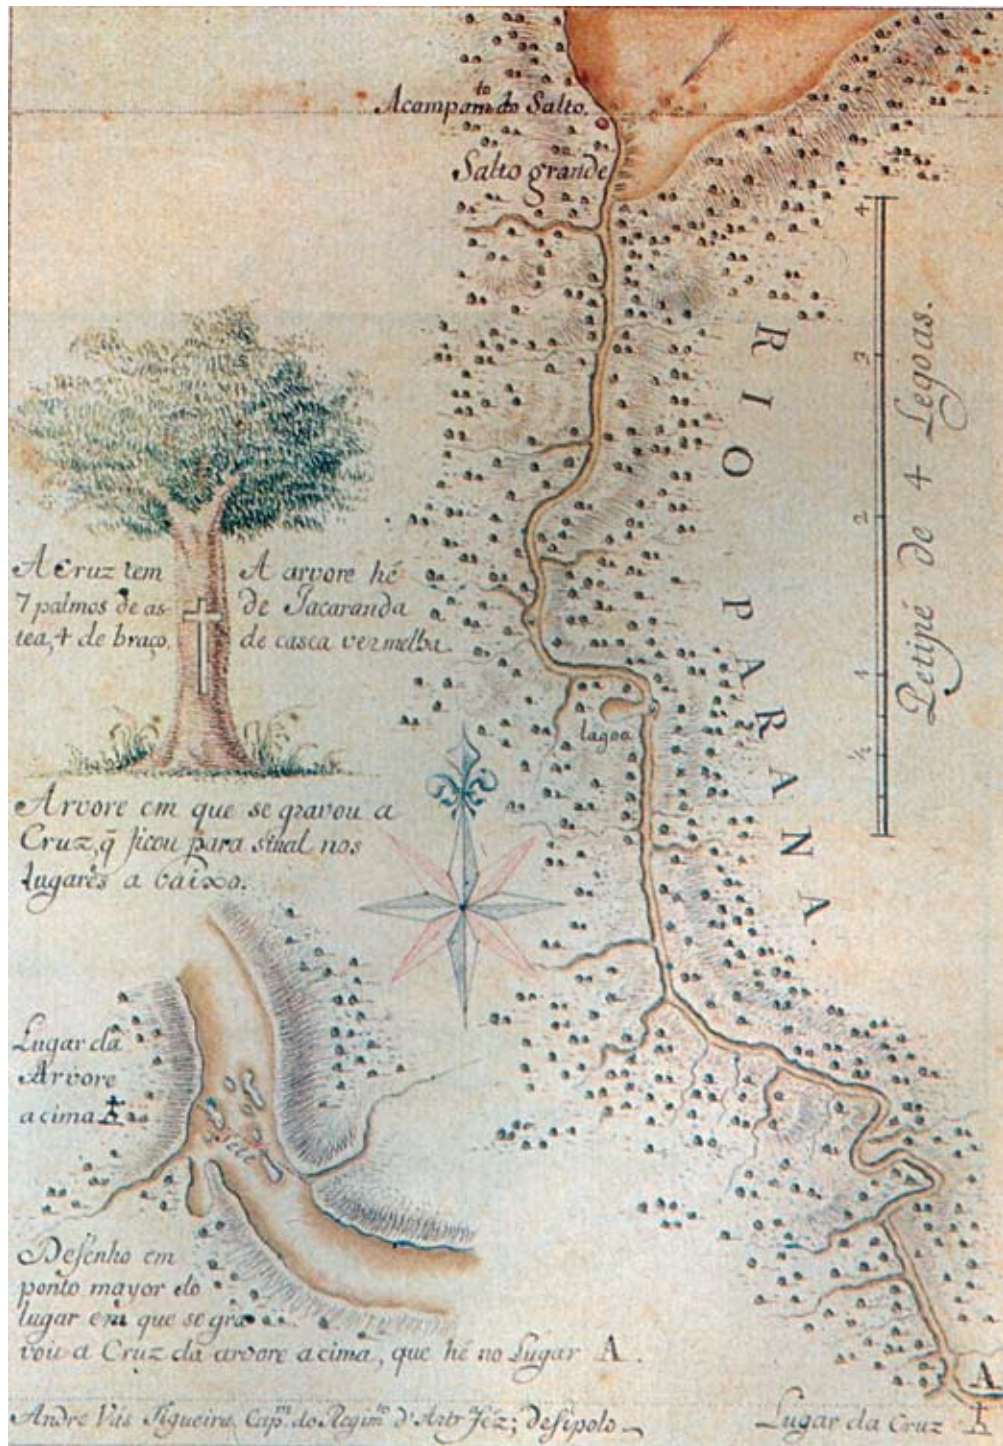 Acampam.to do Salto.
Salto grande
RIO PARANA.
4
3
2
1
½
Petipé de 4 Legoas.
A Cruz tem
7 palmos de as-
tea, 4 de braço.
A arvore hé
de Jacaranda
de casca vermelha
lagoa
Arvore em que se gravou a
Cruz, q̃ ficou para sinal nos
lugares a baixo.
Lugar da
Arvore
acima
Desenho em
ponto mayor do
lugar em que se gra
vou a Cruz da arvore acima, que hé no Lugar A.
A
Lugar da Cruz
Andre Vás Figueira, Cap.m do Regim.to d'Artr.